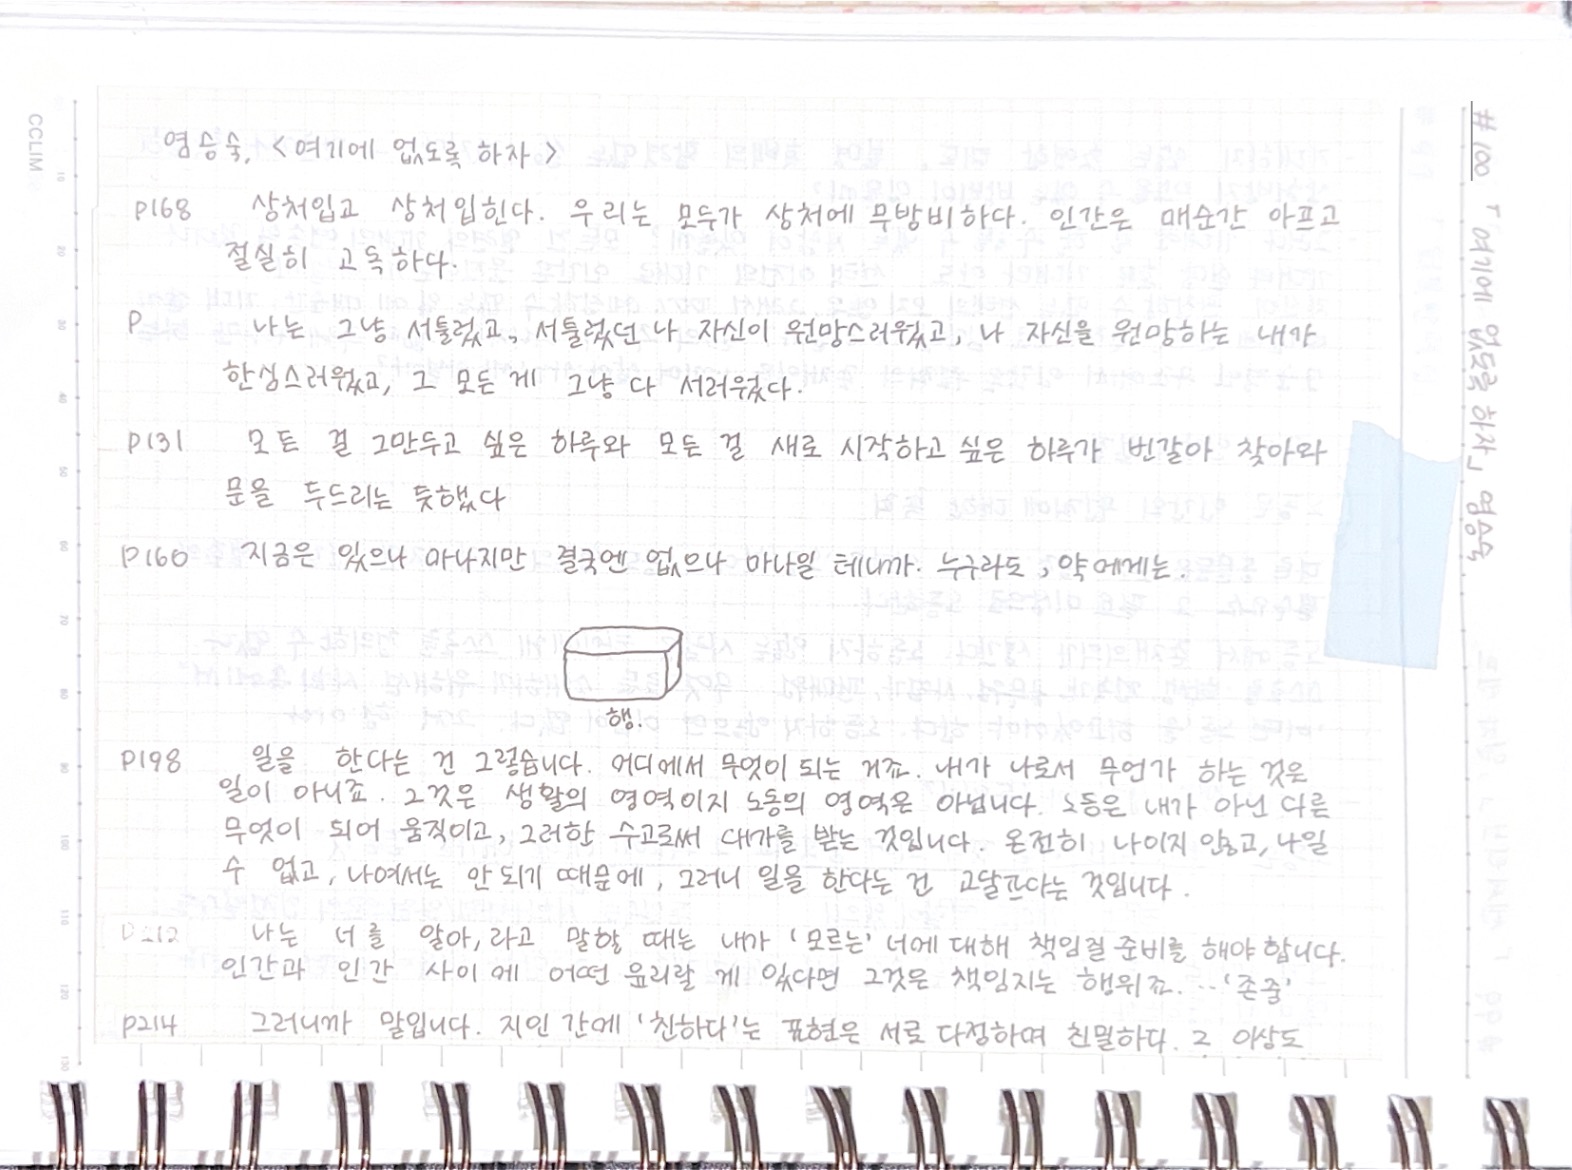 염승숙, <여기에 없도록 하자>
p168 상처입고 상처입힌다. 우리는 모두가 상처에 무방비하다. 인간은 매순간 아프고
절실히 고독하다.
p 나는 그냥 서툴렀고, 서툴렀던 나 자신이 원망스러웠고, 나 자신을 원망하는 내가
한심스러웠고, 그 모든 게 그냥 다 서러웠다.
p131 모든 걸 그만두고 싶은 하루와 모든 걸 새로 시작하고 싶은 하루가 번갈아 찾아와
문을 두드리는 듯했다
p160 지금은 있으나 마나지만 결국엔 없으나 마나일 테니까. 누구라도, 약에게는.
햄.
p198 일을 한다는 건 그렇습니다. 어디에서 무엇이 되는 거죠. 내가 나로서 무언가 하는 것은
일이 아니죠. 그것은 생활의 영역이지 노동의 영역은 아닙니다. 노동은 내가 아닌 다른
무엇이 되어 움직이고, 그러한 수고로써 대가를 받는 것입니다. 온전히 나이지 않고, 나일
수 없고, 나여서는 안 되기 때문에, 그러니 일을 한다는 건 고달프다는 것입니다.
p212 나는 너를 알아, 라고 말할 때는 내가 '모르는' 너에 대해 책임질 준비를 해야 합니다.
인간과 인간 사이에 어떤 윤리랄 게 있다면 그것은 책임지는 행위죠. ··'존중'
p214 그러니까 말입니다. 지인 간에 '친하다'는 표현은 서로 다정하며 친밀하다. 그 이상도
#100 「여기에 없도록 하자」 염승숙
CCLIM
10
20
30
40
50
60
70
80
90
100
110
120
130